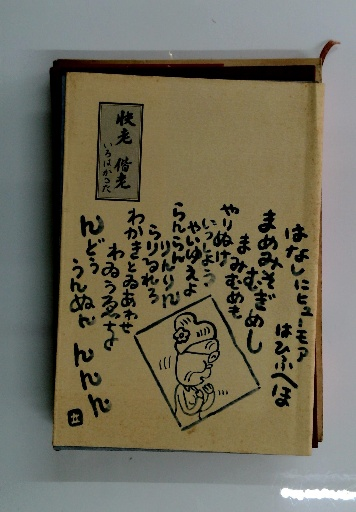 はなしにヒューモア
はひふへほ
まめみそむぎめし
まみむめも
やりぬけ
いっしょう
やいゆえよ
らんらん
りんりん
らりるれろ
わがきとゐあわせ
わゐうゑを
んどう
うんぬん
んんん
偕老
いろはかるた